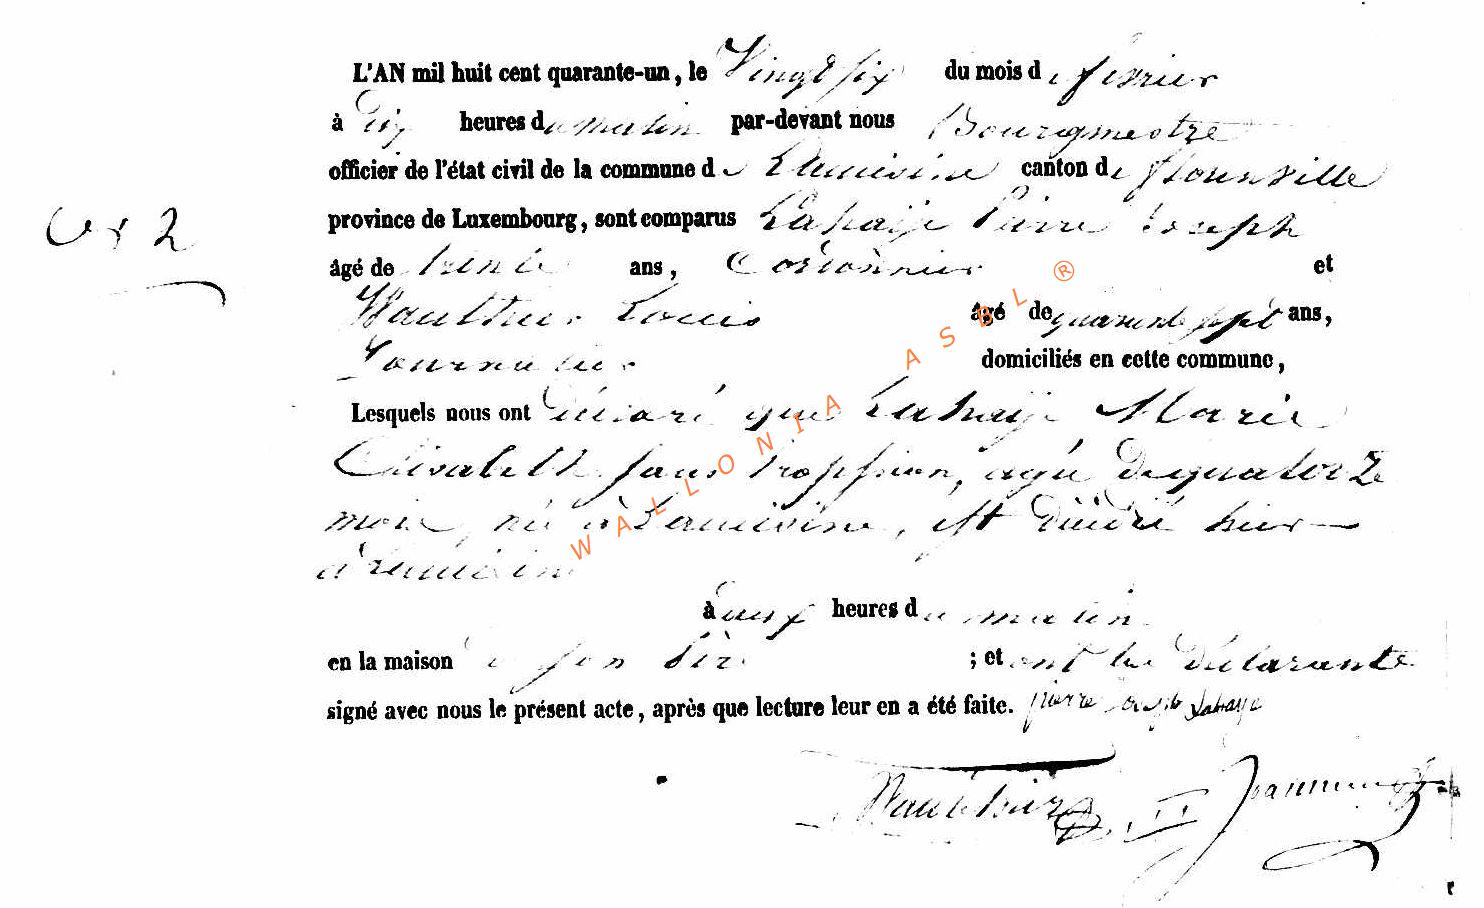 L'AN mil huit cent quarante-un, le Vingt six du mois de fevrier
à dix heures du matin par-devant nous Bourgmestre
officier de l'état civil de la commune de Lacuisine canton de florenville
province de Luxembourg, sont comparus Lahaije Pierre Joseph
N° 2
âgé de trente ans, Cordonnier et
Wauthier Louis âgé de quarante sept ans,
Journalier domiciliés en cette commune,
Lesquels nous ont déclaré que Lahaije Marie
Elisabeth sans proffesion, agée de quatorze
mois, née à Lacuisine, est décédé hier
à Lacuisine
à deux heures du matin
en la maison de son Père ; et ont les déclarants
signé avec nous le présent acte, après que lecture leur en a été faite. pierre joseph Lahaye
Wauthier
WALLONIA ASBL ®